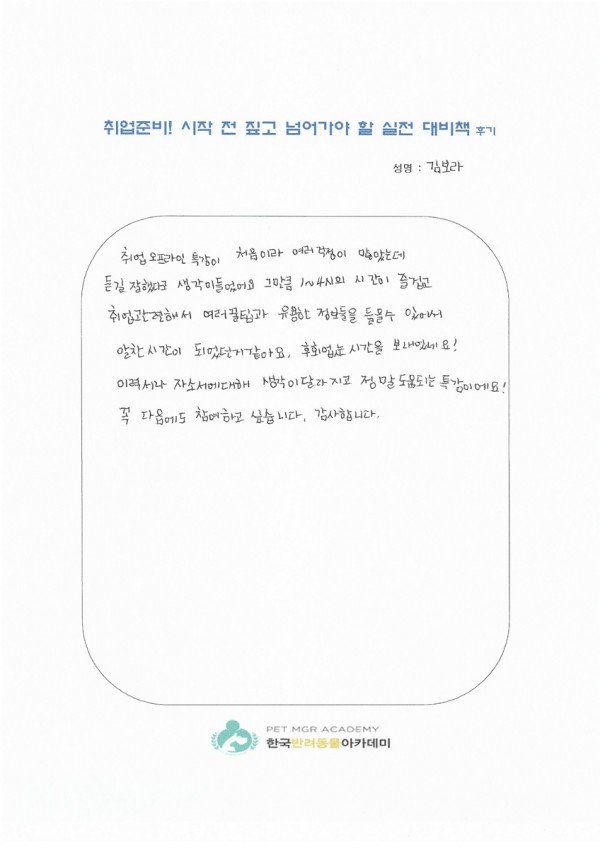 취업준비! 시작 전 짚고 넘어가야 할 실전 대비책 후기
성명 : 김보라
취업 오프라인 특강이 처음이라 여러걱정이 많았는데
듣길 잘했다고 생각이들었어요 그만큼 1~4시의 시간이 즐겁고
취업관련해서 여러꿀팁과 유용한 정보들을 들을수 있어서
알찬시간이 되었던거같아요, 후회없는 시간을 보내었네요!
이력서나 자소서에대해 생각이달라지고 정말도움되는 특강이에요!
꼭 다음에도 참여하고 싶습니다, 감사합니다.
PET MGR ACADEMY
한국반려동물아카데미